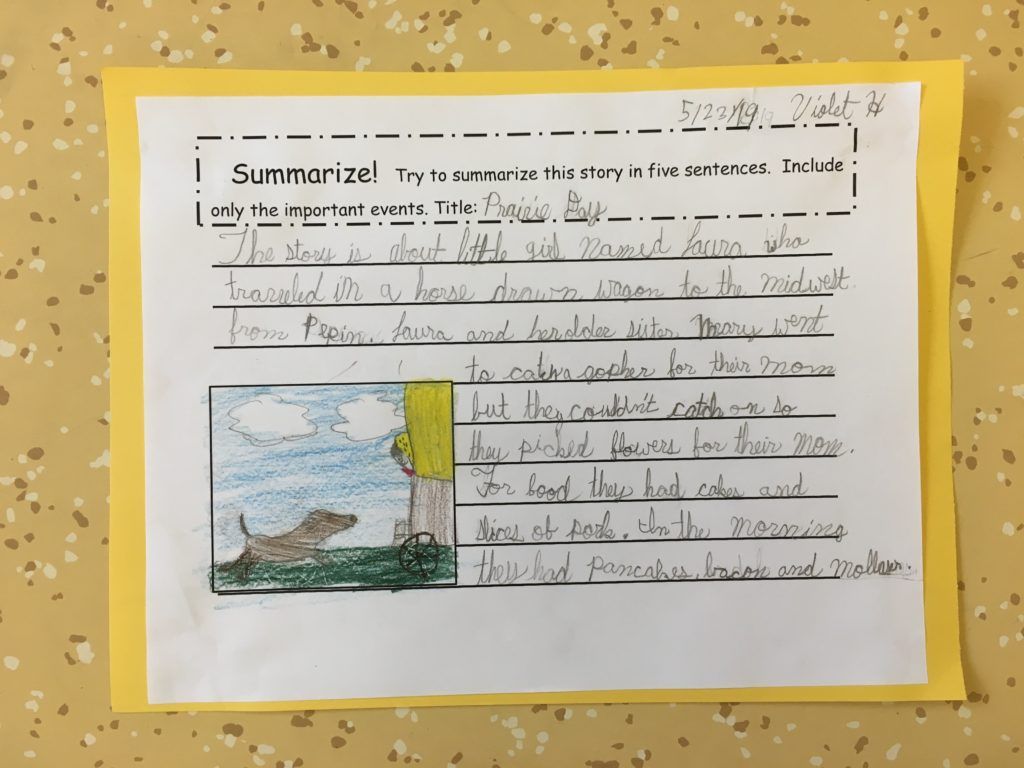 5/23/19 Violet H
Summarize! Try to summarize this story in five sentences. Include
only the important events. Title: Prairie Day
The story is about little girl named Laura who
traveled in a horse drawn wagon to the midwest
from Pepin. Laura and her older sister Mary went
to catch a gopher for their mom
but they couldn't catch on so
they picked flowers for their mom.
For food they had cakes and
slices of pork. In the morning
they had pancakes, bacon and